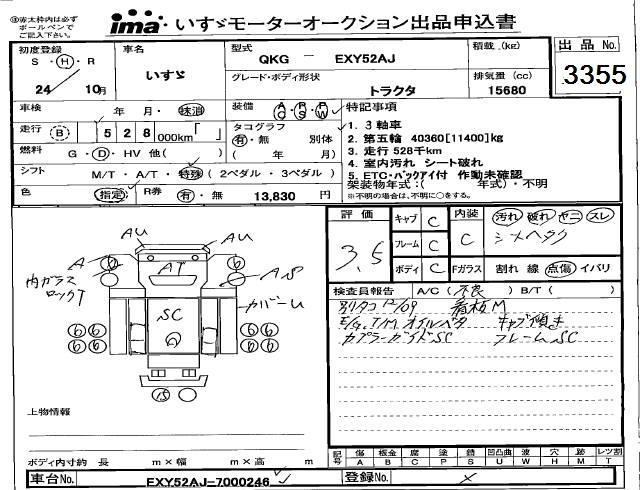 ※赤太枠内は必ず
ボールペンで
ima いすゞモーターオークション出品申込書
初度登録
S・H・R
24 10月
車名
いすゞ
型式
QKG － EXY52AJ
グレード・ボディ形状
トラクタ
積載(kg)
排気量(cc)
15680
出品No.
3355
車検 年 月・抹消
装備 AC PS PW
走行 (B) 528 000km「 」
タコグラフ
有・無 別体
( 年 月)
燃料 G・D・HV 他( )
シフト M/T・A/T・特殊(2ペダル・3ペダル)
色 指定 R券 有・無 13,830 円
特記事項
1. 3軸車
2. 第五輪 40360[11400]kg
3. 走行 528千km
4. 室内汚れ シート破れ
5. ETC・バックアイ付 作動未確認
架装物年式:( 年式)・不明
※不明の場合は、不明に○をする。
AU AU
A AT AS
内ガラス
ロックT
SC
カバーム
6 6 6 6 6 6
15
上物情報
ボディ内寸約 長 m×幅 m×高 m
評価
3.5
キャブ C
フレーム C
ボディ C
内装
C
汚れ 破れ ヤニ スレ
Fガラス 割れ 線 点傷 イバリ
検査員報告 A/C(不良) B/T( )
別タコ 12/09 看板M
E/G,T/M オイルベタ キャブ傾き
カプラーガイドSC フレームSC
記号 傷 板金 腐 塗 錆 凹凸曲 波 穴 跡 レツ割
A B C P S U W H M T
車台No. EXY52AJ-7000246
登録No.